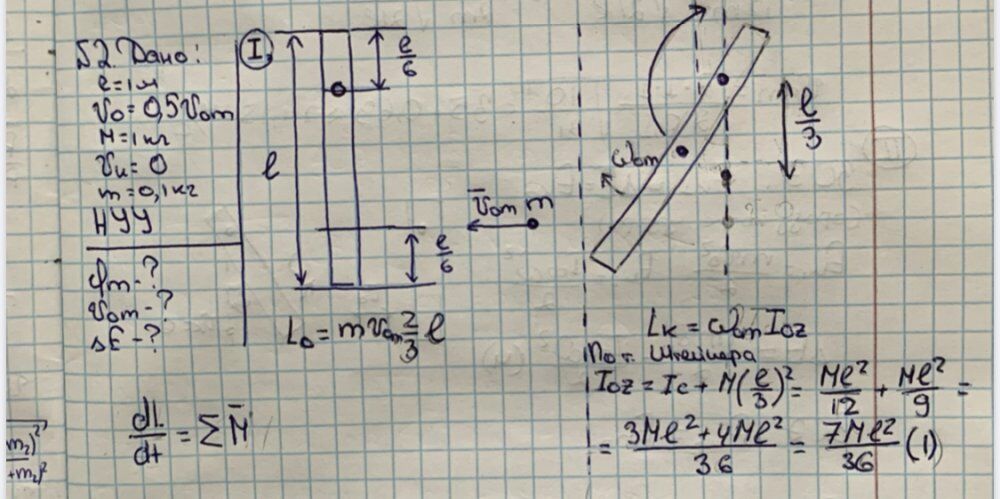 №2. Дано:
l=1м
v₀ = 0,5v₀ₘ
M=1кг
vₖ = 0
m=0,1кг
НУУ
φₘ-?
v₀ₘ-?
ΔE-?
I.
l/6
l
l/6
v̄₀ₘ m
L₀ = mv₀ₘ 2/3 l
dL̄/dt = ΣM̄
ω₀ₘ
l/3
Lₖ = ω₀ₘ I₀z
По т. Штейнера
I₀z = Ic + M(l/3)² = Ml²/12 + Ml²/9 =
= (3Ml²+4Ml²)/36 = 7Ml²/36 (1)
m₂)²
+m₂)²